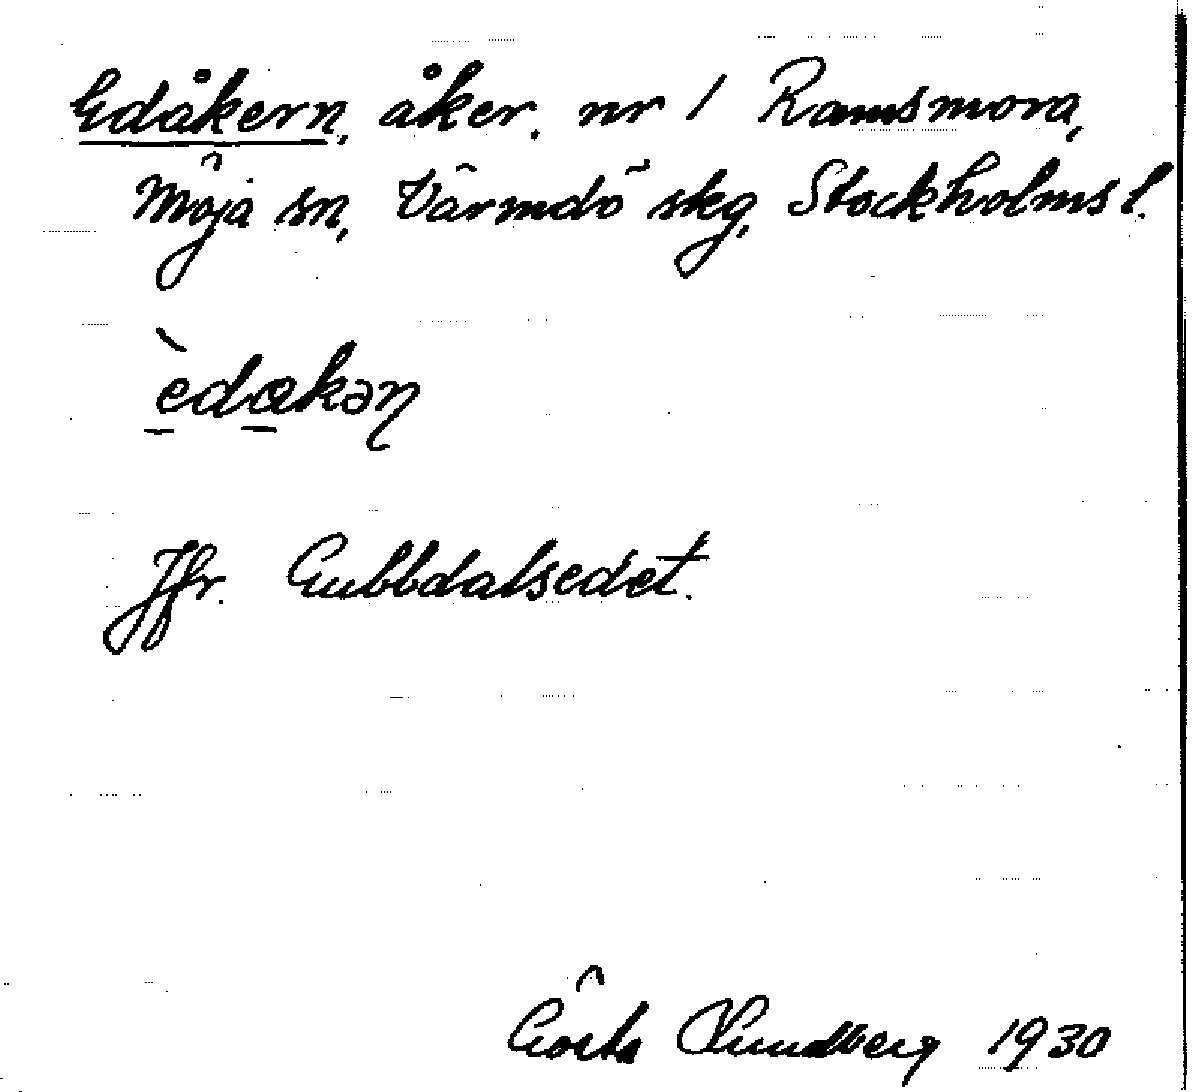 Edåkern, åker. nr 1 Ramsmora,
Möja sn, Värmdö skg, Stockholms l.
èdakən
Jfr. Gubbdalsedet.
Gösta Sundberg 1930